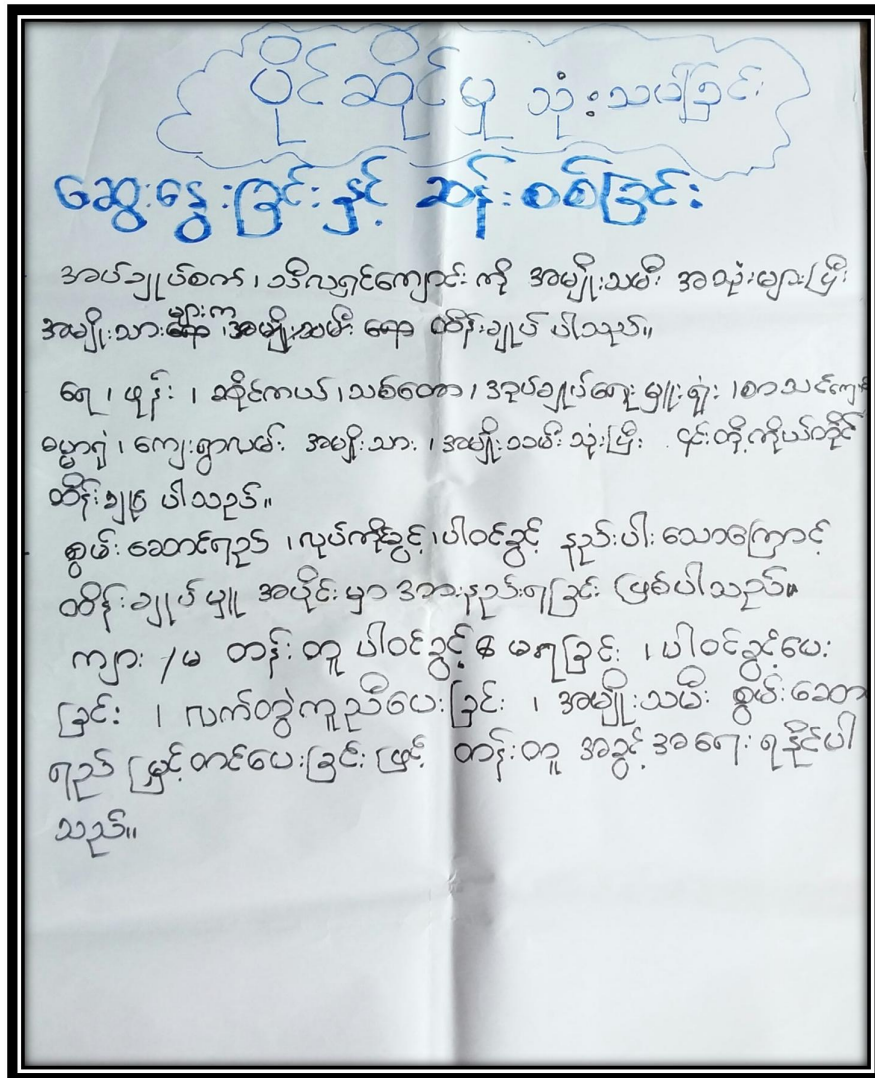 ပိုင်ဆိုင်မှု သုံးသပ်ခြင်း
ဆွေးနွေးခြင်းနှင့် ဆန်းစစ်ခြင်း
အပ်ချုပ်စက် ၊ သီလရှင်ကျောင်း ကို အမျိုးသမီး အသုံးများပြီး
အမျိုးသားများက ၊အမျိုးသမီး ရော ထိန်းချုပ် ပါသည်။
ရေ ၊ ဖုန်း ၊ ဆိုင်ကယ် ၊သစ်တော ၊ အုပ်ချုပ်ရေးမှူးရုံး ၊စာသင်ကျောင်း
ဓမ္မာရုံ ၊ ကျေးရွာလမ်း အမျိုးသား ၊အမျိုးသမီး သုံးပြီး ၎င်းတို့ကိုယ်တိုင်
ထိန်းချုပ် ပါသည်။
စွမ်းဆောင်ရည် ၊လုပ်ကိုင်ခွင့် ၊ပါဝင်ခွင့် နည်းပါးသောကြောင့်
ထိန်းချုပ်မှု အပိုင်းမှာ အားနည်းရခြင်း ဖြစ်ပါသည်။
ကျား /မ တန်းတူ ပါဝင်ခွင့် မရခြင်း ၊ပါဝင်ခွင့်ပေး
ခြင်း ၊ လက်တွဲကူညီပေးခြင်း ၊ အမျိုးသမီး စွမ်းဆော
ရည် မြှင့်တင်ပေးခြင်း ဖြင့် တန်းတူ အခွင့်အရေး ရနိုင်ပါ
သည်။